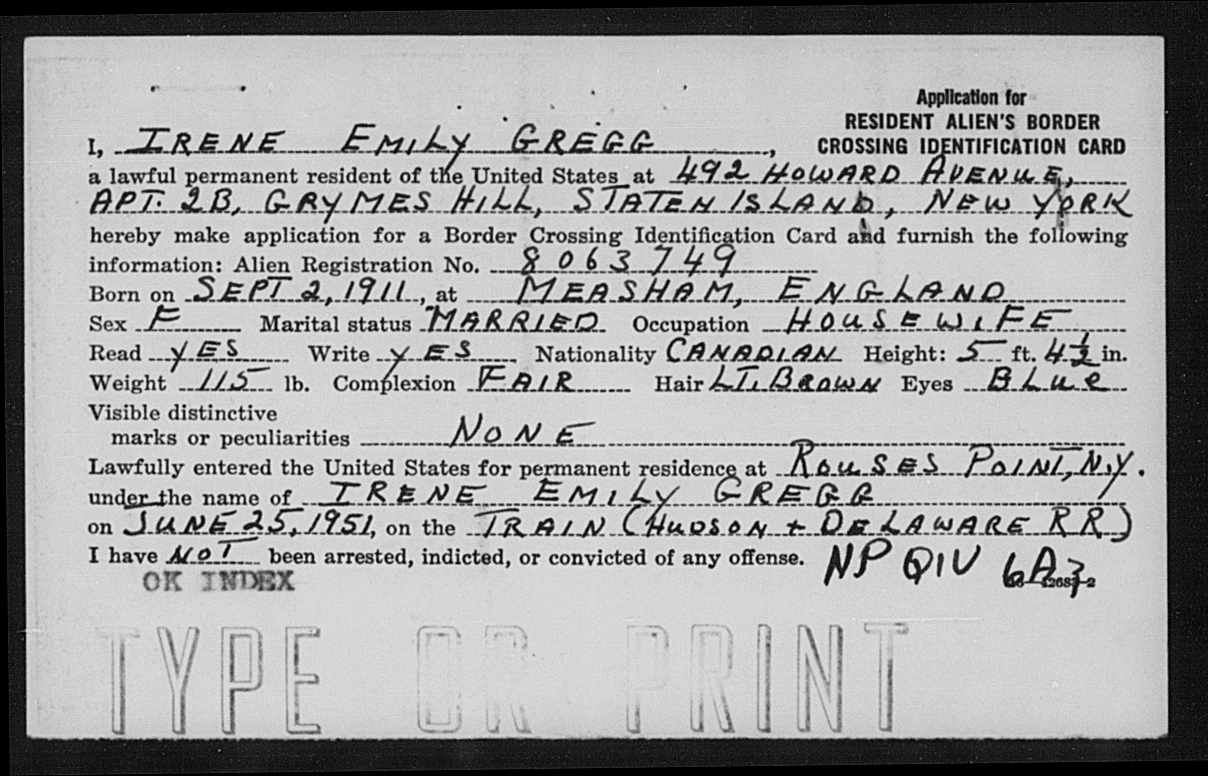 Application for
RESIDENT ALIEN'S BORDER
CROSSING IDENTIFICATION CARD
I, IRENE EMILY GREGG,
a lawful permanent resident of the United States at 492 HOWARD AVENUE,
APT. 2B, GRYMES HILL, STATEN ISLAND, NEW YORK
hereby make application for a Border Crossing Identification Card and furnish the following
information: Alien Registration No. 8063749
Born on SEPT 2, 1911, at MEASHAM, ENGLAND
Sex F Marital status MARRIED Occupation HOUSEWIFE
Read YES Write YES Nationality CANADIAN Height: 5 ft. 4½ in.
Weight 115 lb. Complexion FAIR Hair LT. BROWN Eyes BLUE
Visible distinctive
marks or peculiarities NONE
Lawfully entered the United States for permanent residence at ROUSES POINT, N.Y.
under the name of IRENE EMILY GREGG
on JUNE 25, 1951, on the TRAIN (HUDSON + DELAWARE RR)
I have NOT been arrested, indicted, or convicted of any offense.
NP QIV
OK INDEX
TYPE OR PRINT